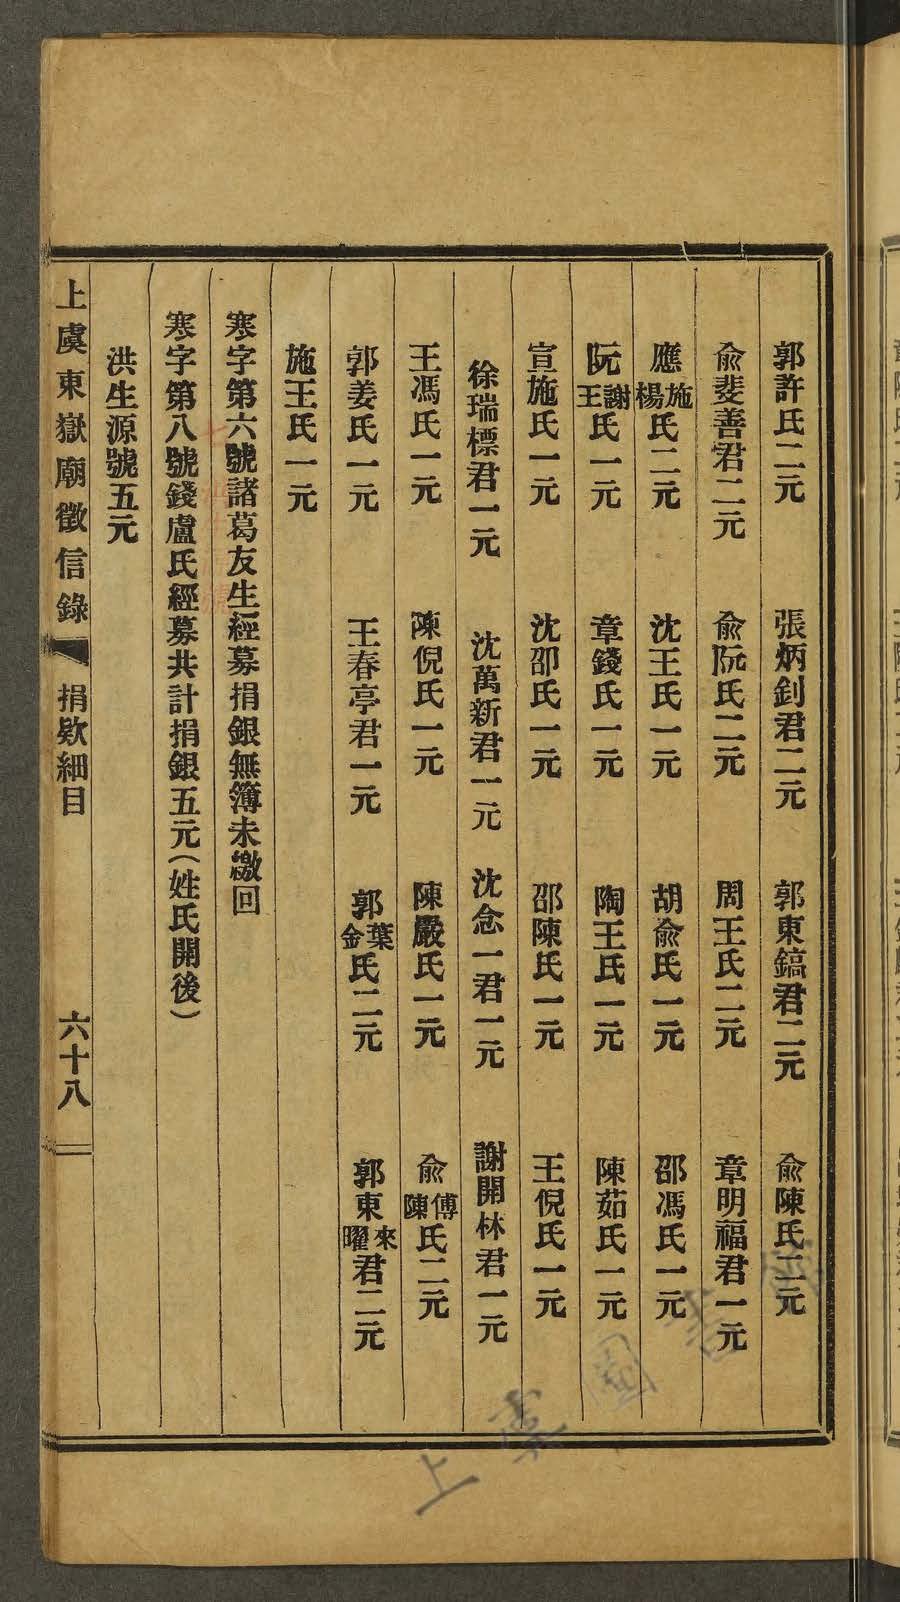 郭許氏二元　張炳釗君二元　郭東鎬君二元　俞陳氏二元
俞斐善君二元　俞阮氏二元　周王氏二元　章明福君一元
應施楊氏二元　沈王氏一元　胡俞氏一元　邵馮氏一元
阮謝王氏一元　章錢氏一元　陶王氏一元　陳茹氏一元
宣施氏一元　沈邵氏一元　邵陳氏一元　王倪氏一元
徐瑞標君一元　沈萬新君一元　沈念一君一元　謝開林君一元
王馮氏一元　陳倪氏一元　陳嚴氏一元　俞傅陳氏二元
郭姜氏一元　王春亭君一元　郭葉金氏二元　郭東來曜君二元
施王氏一元
寒字第六號諸葛友生經募捐銀無簿未繳回
寒字第八號錢盧氏經募共計捐銀五元（姓氏開後）
洪生源號五元
上虞東嶽廟徵信錄　捐欵細目　六十八
上虞圖書館